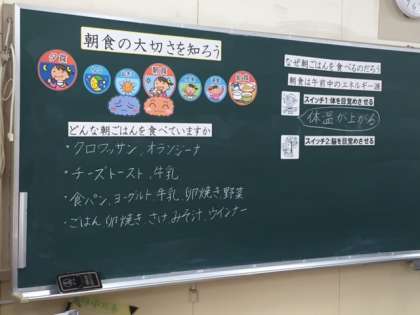 朝食の大切さを知ろう
夕食
朝食
どんな朝ごはんを食べていますか
・クロワッサン、オランジーナ
・チーズトースト、牛乳
・食パン、ヨーグルト、牛乳、卵焼き、野菜
・ごはん、卵焼き、さけ、みそ汁、ウインナー
なぜ朝ごはんを食べるのだろう
朝食は午前中のエネルギー源
スイッチ1:体を目覚めさせる
体温が上がる
スイッチ2:脳を目覚めさせる